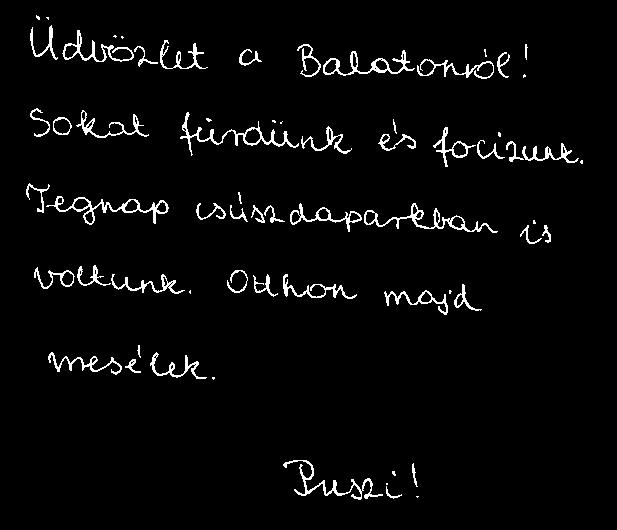 Üdvözlet a Balatonról!
Sokat fürdünk és focizunk.
Tegnap csúszdaparkban is
voltunk. Otthon majd
mesélek.
Puszi!